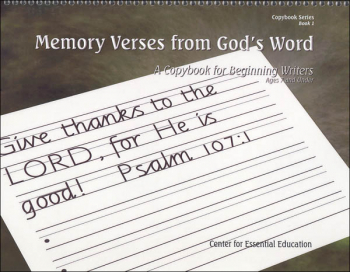 Copybook Series
Book 1
Memory Verses from God's Word
A Copybook for Beginning Writers
Ages 7 and Under
Give thanks to the
LORD, for He is
good! Psalm 107:1
Center for Essential Education